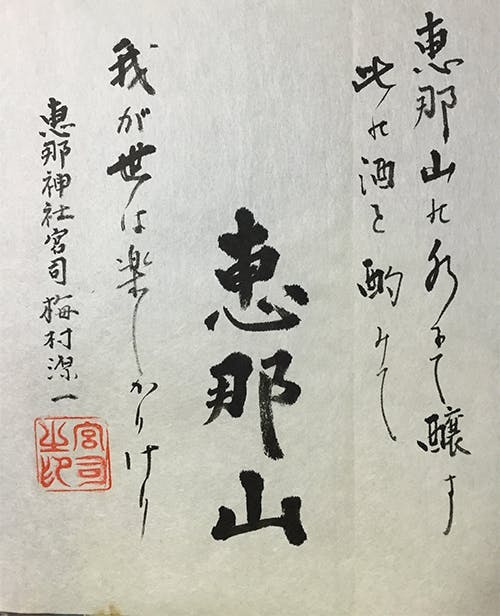 恵那山の水にて醸す
此の酒を酌みて
恵那山
我が世は楽しかりけり
恵那神社宮司 梅村深一
宮司之印